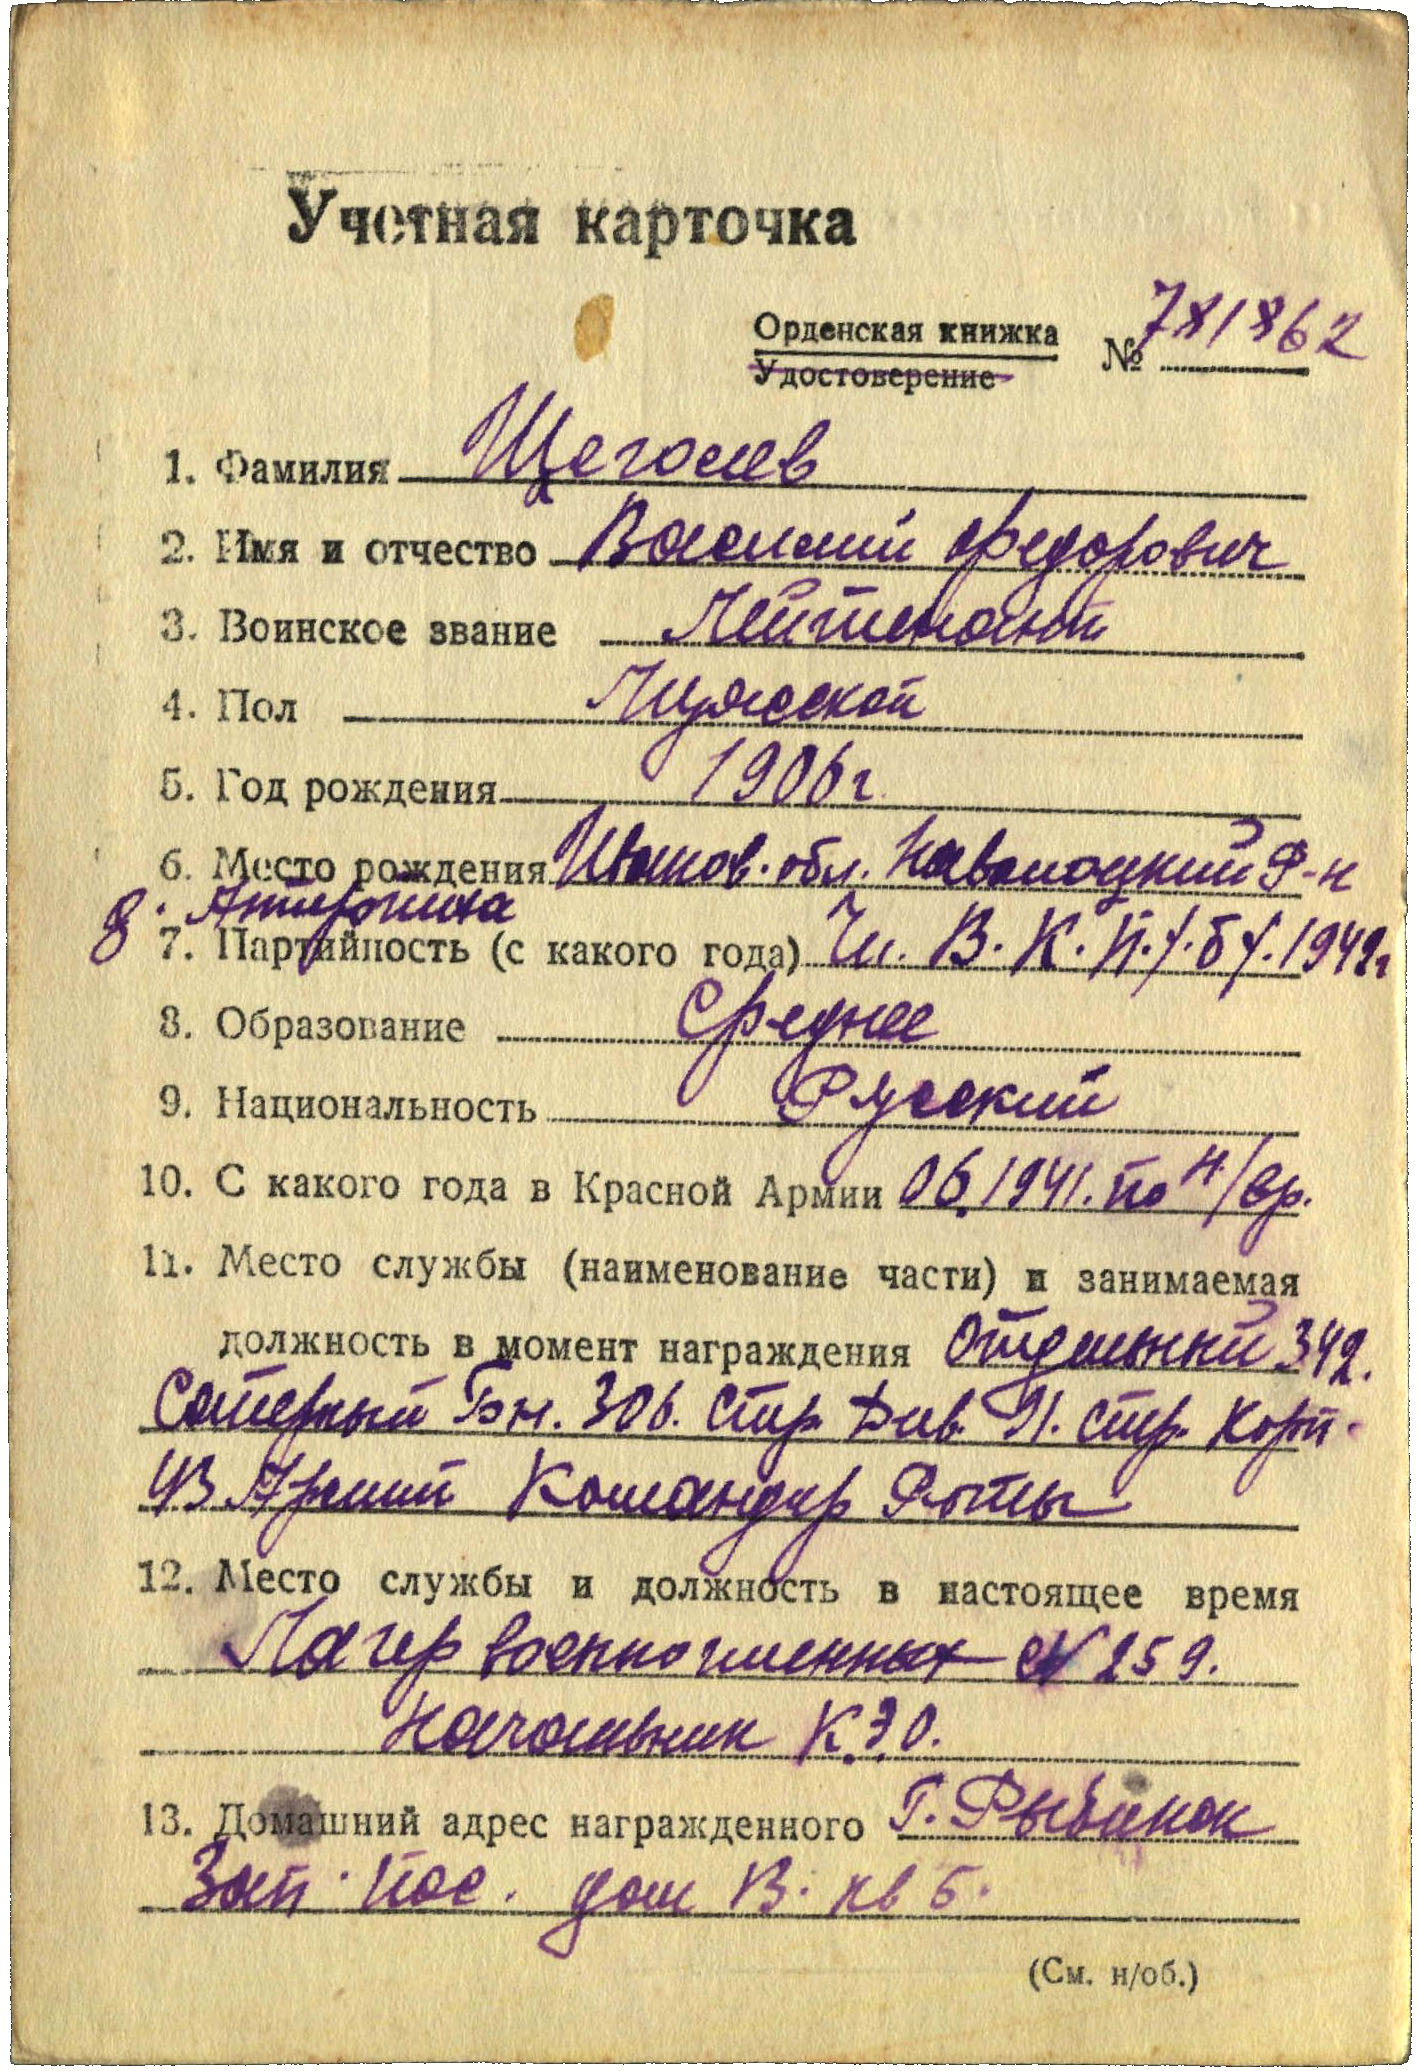 Учетная карточка
Орденская книжка № 781862
Удостоверение
1. Фамилия Щеголев
2. Имя и отчество Василий Федорович
3. Воинское звание Лейтенант
4. Пол Мужской
5. Год рождения 1906 г
6. Место рождения Иванов. обл. Наволоцкий Р-н
д. Антропиха
7. Партийность (с какого года) Чл. В. К. П. /. б /. 1942 г
8. Образование Среднее
9. Национальность Русский
10. С какого года в Красной Армии 06.1941. по н/вр.
11. Место службы (наименование части) и занимаемая
должность в момент награждения Отдельный 342.
Саперный Бн. 306. Стр. Див. 91. стр. Корп.
43 Армии Командир Роты
12. Место службы и должность в настоящее время
Лагер военнопленных № 259.
Начальник К.Э.О.
13. Домашний адрес награжденного Г. Рыбинск
Зап. пос. дом В. кв 5.
(См. н/об.)